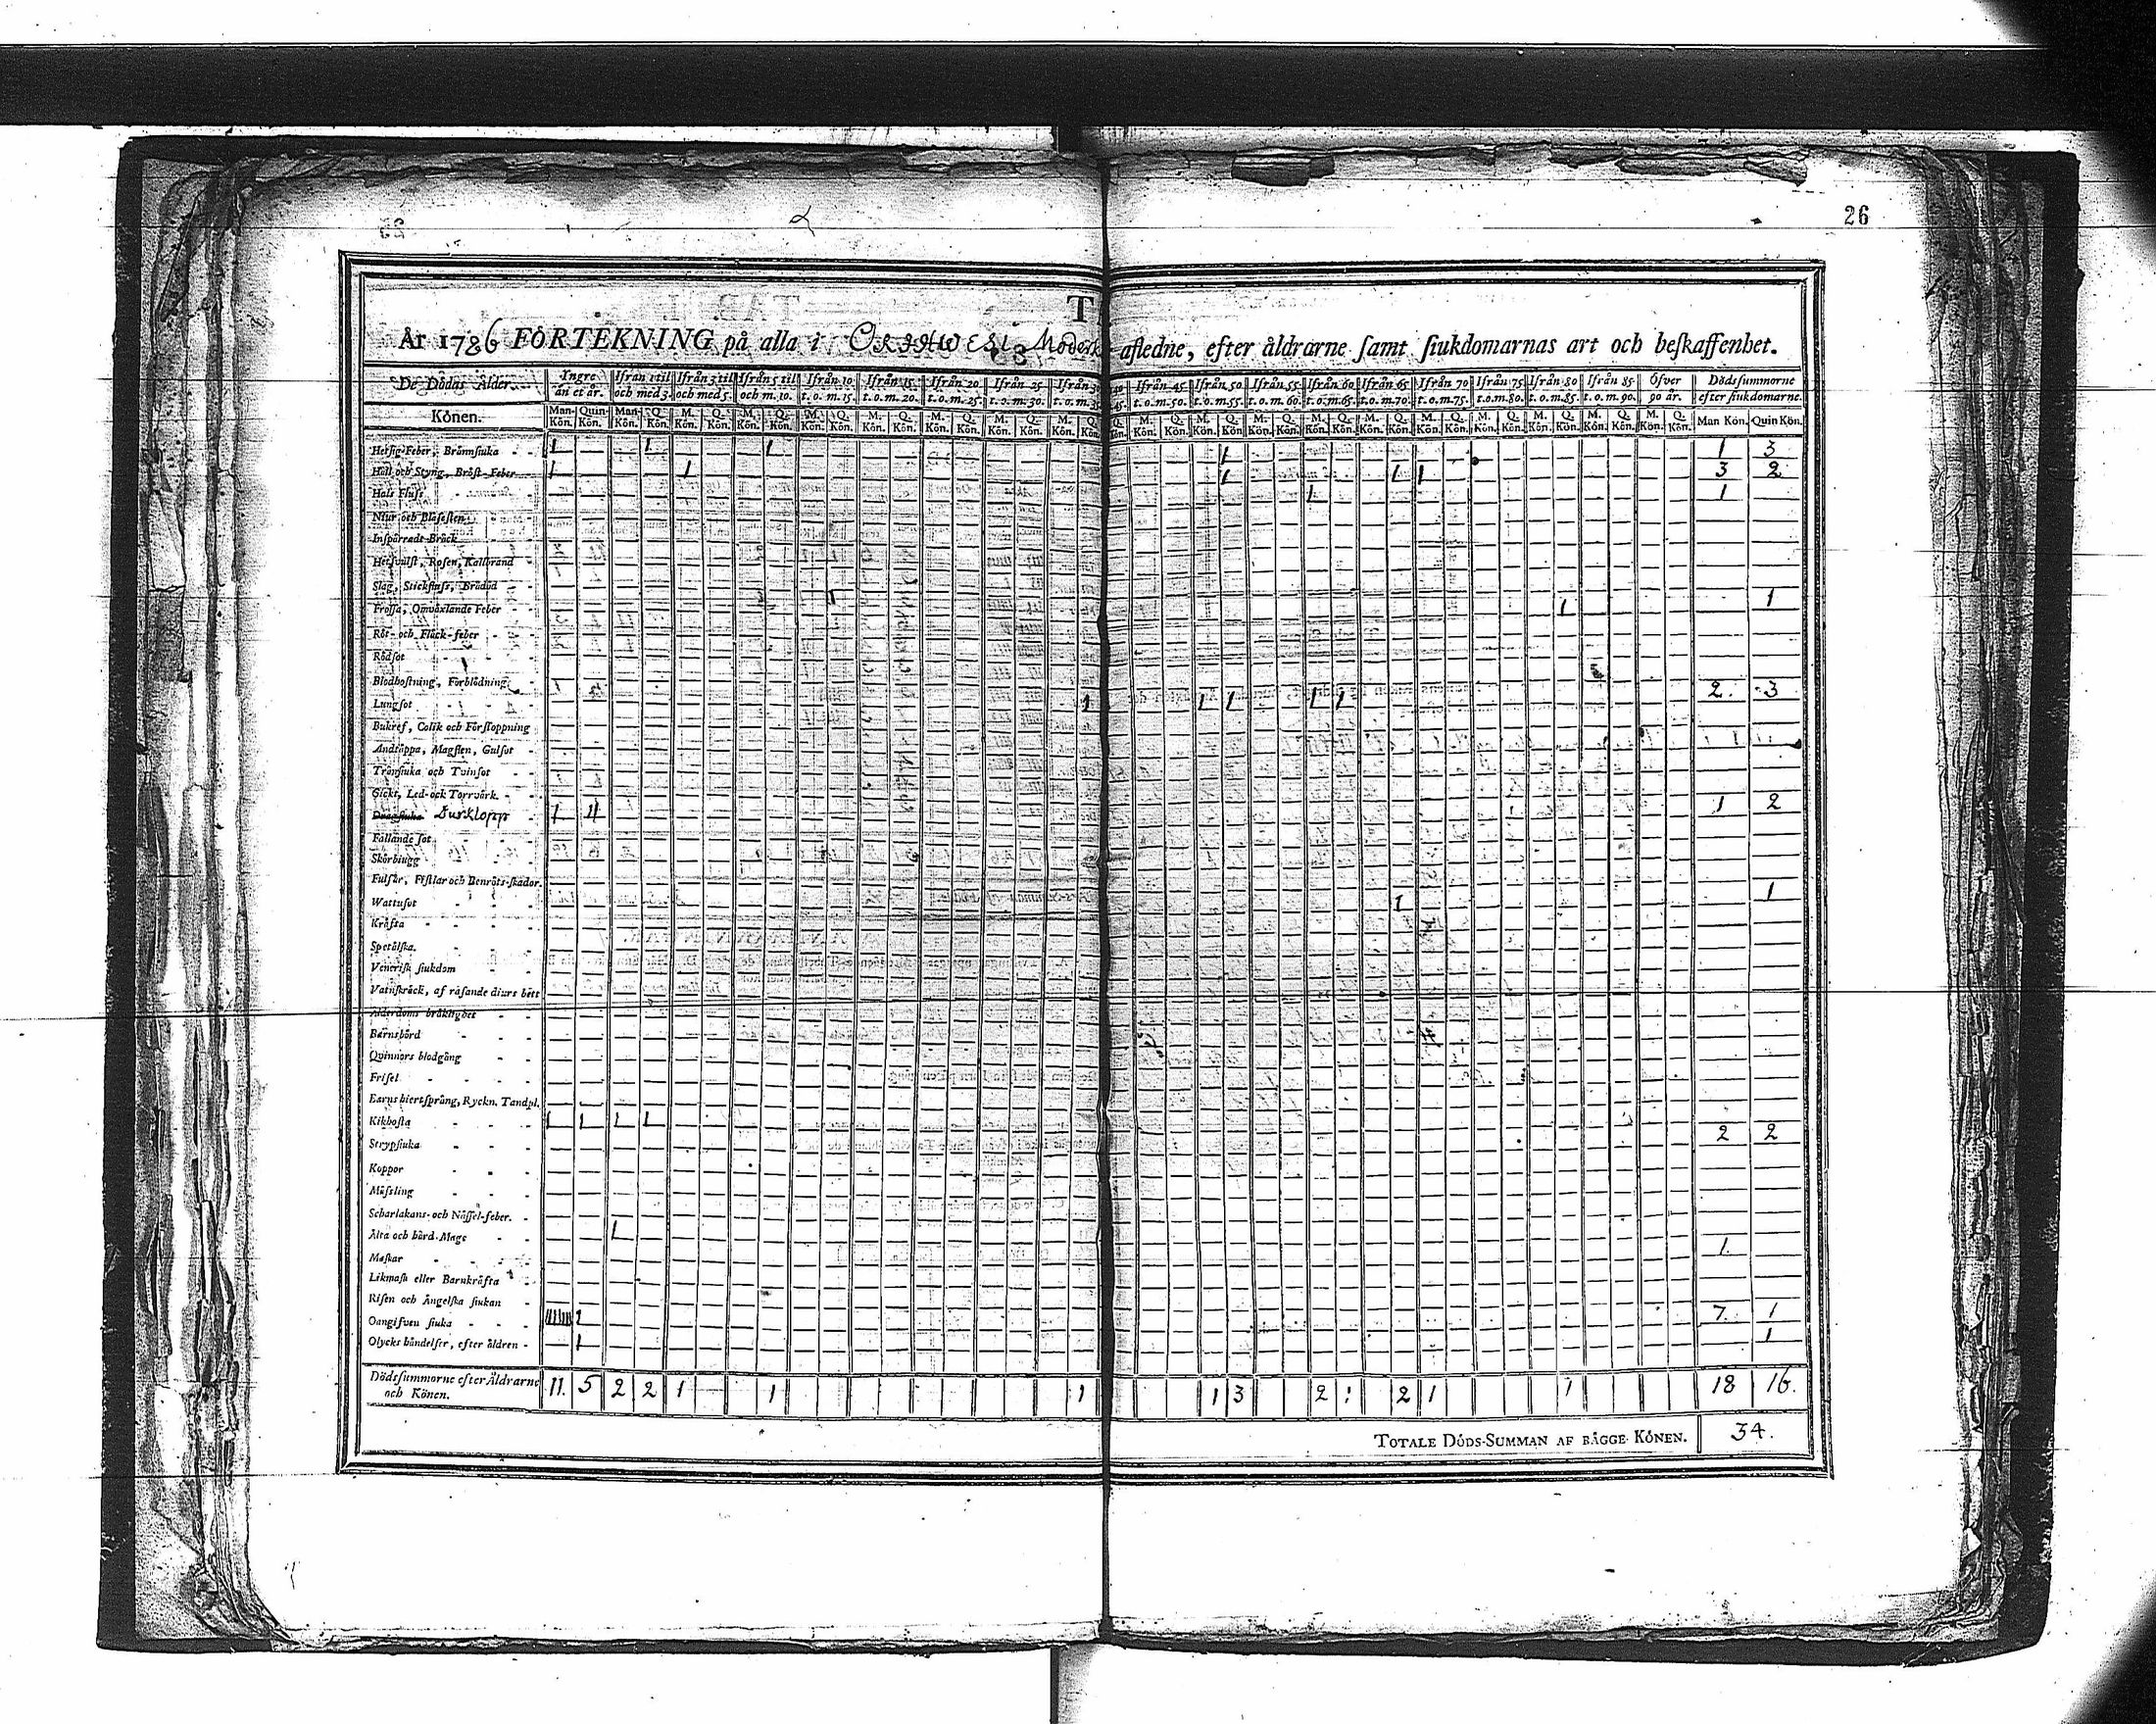 26
T
År 1786 FÖRTEKNING på alla i Moderk afledne, efter åldrarne ſamt ſiukdomarnas art och beſkaffenhet.
De Dödas Ålder. Yngre än et år. Ifrån 1 til och med 3. Ifrån 3 til och med 5. Ifrån 5 til och m. 10. Ifrån 10 t. o. m. 15. Ifrån 15 t. o. m. 20. Ifrån 20 t. o. m. 25. Ifrån 25 t. o. m. 30. Ifrån 30 t. o. m. 40 45. Ifrån 45 t. o. m. 50. Ifrån 50 t. o. m. 55. Ifrån 55 t. o. m. 60. Ifrån 60 t. o. m. 65. Ifrån 65 t. o. m. 70. Ifrån 70 t. o. m. 75. Ifrån 75 t. o. m. 80. Ifrån 80 t. o. m. 85. Ifrån 85 t. o. m. 90. Öfver 90 år. Dödsſummorne efter ſiukdomarne.
Könen. Man Kön. Quin Kön. Man Kön. Q. Kön. M. Kön. Q. Kön. M. Kön. Q. Kön. M. Kön. Q. Kön. M. Kön. Q. Kön. M. Kön. Q. Kön. M. Kön. Q. Kön. M. Kön. Q. Kön. M. Kön. Q. Kön. M. Kön. Q. Kön. M. Kön. Q. Kön. M. Kön. Q. Kön. M. Kön. Q. Kön. M. Kön. Q. Kön. M. Kön. Q. Kön. M. Kön. Q. Kön. M. Kön. Q. Kön. M. Kön. Q. Kön. Man Kön. Quin Kön.
Hetſig Feber, Brännſiuka 1 1 1 1 1 3
Håll och Styng, Bröſt-Feber 1 1 1 1 1 3 2
Hals Fluſs 1 1
Niur och Blåſeſten
Inſpärradt Bråck
Hetſvulſt, Roſen, Kallbrand
Slag, Stickfluſs, Brådöd
Froſſa, Omväxlande Feber 1 1
Röt- och Fläck-feber
Rödſot
Blodhoſtning, Förblödning
Lungſot 1 1 1 1 1 2. 3
Bukref, Colik och Förſtoppning
Andtäppa, Magſten, Gulſot
Trånſiuka och Tvinſot
Gickt, Led- ock Torrvärk
1 11 1 2
Fallande ſot
Skörbiugg
Fulſår, Fiſtlar och Benröts-ſkador.
Wattuſot 1 1
Kräfta
Spetälſka.
Veneriſk ſiukdom
Vatuſkräck, af raſande diurs bett
Ålderdoms bräklighet
Barnsbörd
Qvinnors blodgång
Friſel
Barns hiertſprång, Ryckn. Tandpl.
Kikhoſta 1 1 1 1 2 2
Strypſiuka
Koppor
Mäſsling
Scharlakans- och Näſſel-feber.
Älta och hård Mage 1 1.
Maſkar
Likmaſk eller Barnkräfta
Riſen och Ängelſka ſiukan
Oangifven ſiuka 1 7. 1
Olycks händelſer, efter åldren 1 1
Dödsſummorne efter Åldrarne och Könen. 11. 5 2 2 1 1 1 1 3 2 1 2 1 1 18 16.
TOTALE DÖDS-SUMMAN AF BÄGGE KÖNEN. 34.